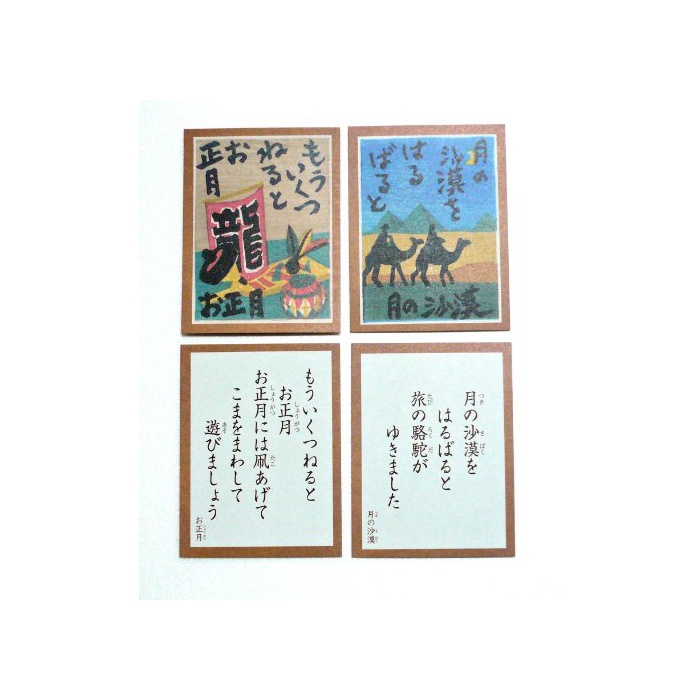 もう
いくつ
ねると
お
正月
龍
お正月
月の
沙漠を
はる
ばると
月の沙漠
もういくつねると
お正月
お正月には凧あげて
こまをまわして
遊びましょう
お正月
月の沙漠を
はるばると
旅の駱駝が
ゆきました
月の沙漠